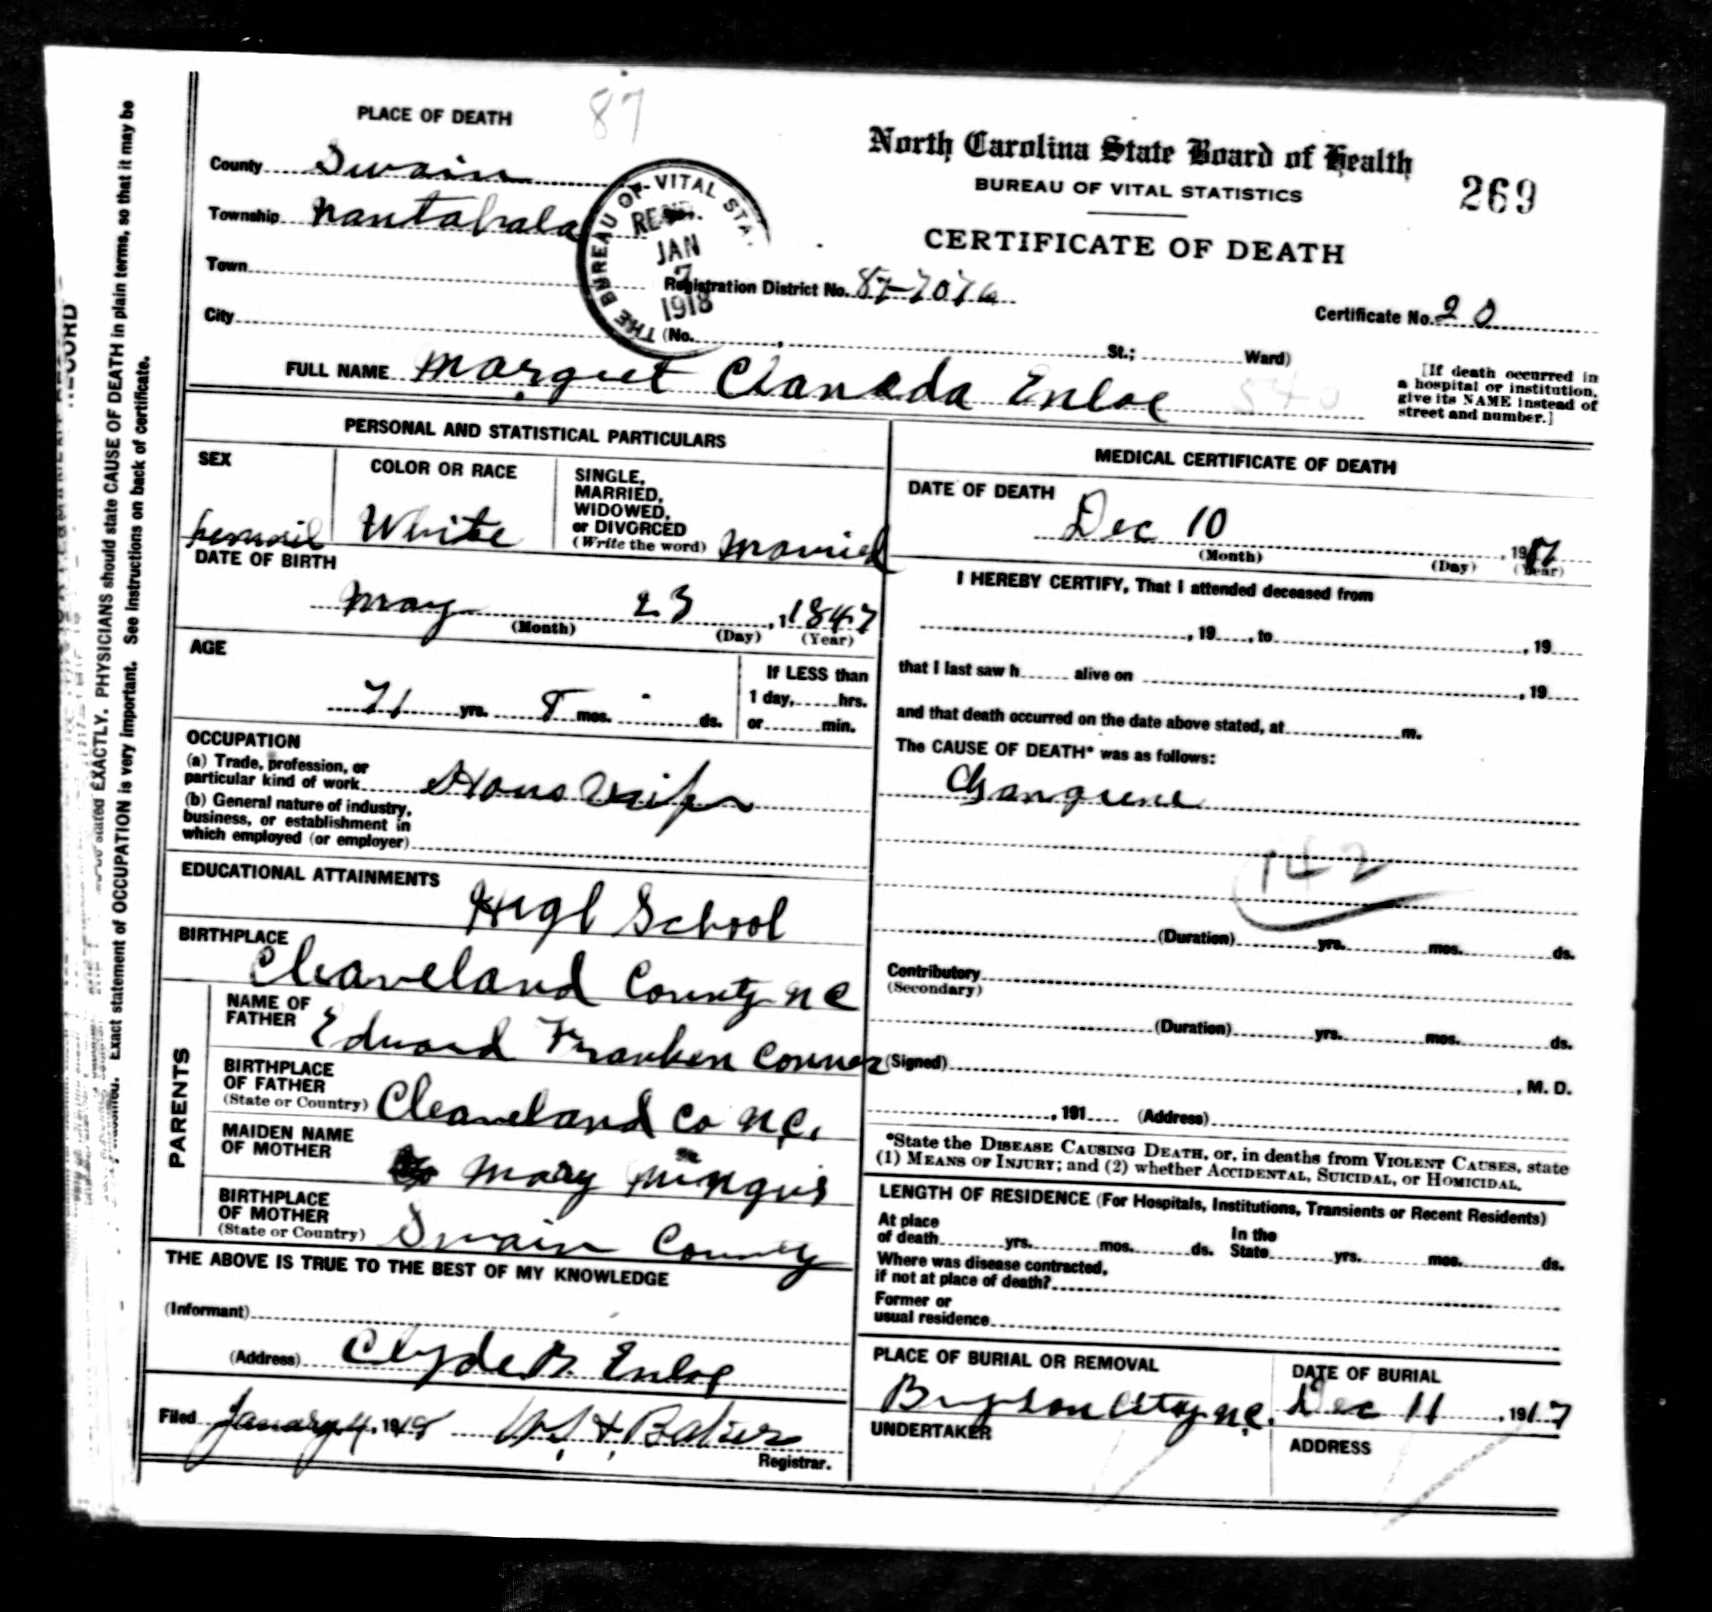 87
PLACE OF DEATH
County Swain
Township Nantahala
Town
City
THE BUREAU OF VITAL STA.
REC'D.
JAN
7
1918
North Carolina State Board of Health
BUREAU OF VITAL STATISTICS
269
CERTIFICATE OF DEATH
Registration District No. 87-707a
Certificate No. 20
(No. , St.; Ward)
[If death occurred in
a hospital or institution,
give its NAME instead of
street and number.]
FULL NAME Marguet Chanada Enloe
PERSONAL AND STATISTICAL PARTICULARS
SEX
COLOR OR RACE
White
SINGLE,
MARRIED,
WIDOWED,
or DIVORCED
(Write the word) Married
DATE OF BIRTH
May 23, 11847
(Month) (Day) (Year)
AGE
71 yrs. 8 mos. - ds.
If LESS than
1 day, hrs.
or min.
OCCUPATION
(a) Trade, profession, or
particular kind of work
(b) General nature of industry,
business, or establishment in
which employed (or employer)
EDUCATIONAL ATTAINMENTS
High School
BIRTHPLACE
Cleaveland County NC
PARENTS
NAME OF
FATHER Edward Franken Conner
BIRTHPLACE
OF FATHER
(State or Country) Cleaveland Co N.C.
MAIDEN NAME
OF MOTHER
Mary Mingus
BIRTHPLACE
OF MOTHER
(State or Country) Swain County
THE ABOVE IS TRUE TO THE BEST OF MY KNOWLEDGE
(Informant)
(Address) Clyde B. Enloe
Filed January 4, 1918
Registrar.
MEDICAL CERTIFICATE OF DEATH
DATE OF DEATH
Dec 10, 1917
(Month) (Day) (Year)
I HEREBY CERTIFY, That I attended deceased from
, 19 , to , 19
that I last saw h alive on , 19
and that death occurred on the date above stated, at m.
The CAUSE OF DEATH* was as follows:
Gangrene
142
(Duration) yrs. mos. ds.
Contributory
(Secondary)
(Duration) yrs. mos. ds.
(Signed) , M. D.
, 191 (Address)
*State the DISEASE CAUSING DEATH, or, in deaths from VIOLENT CAUSES, state
(1) MEANS OF INJURY; and (2) whether ACCIDENTAL, SUICIDAL, or HOMICIDAL.
LENGTH OF RESIDENCE (For Hospitals, Institutions, Transients or Recent Residents)
At place
of death yrs. mos. ds.
In the
State yrs. mos. ds.
Where was disease contracted,
if not at place of death?
Former or
usual residence
PLACE OF BURIAL OR REMOVAL
Bryson City N.C.
DATE OF BURIAL
Dec 11, 1917
UNDERTAKER
ADDRESS
stated EXACTLY. PHYSICIANS should state CAUSE OF DEATH in plain terms, so that it may be
Exact statement of OCCUPATION is very important. See instructions on back of certificate.